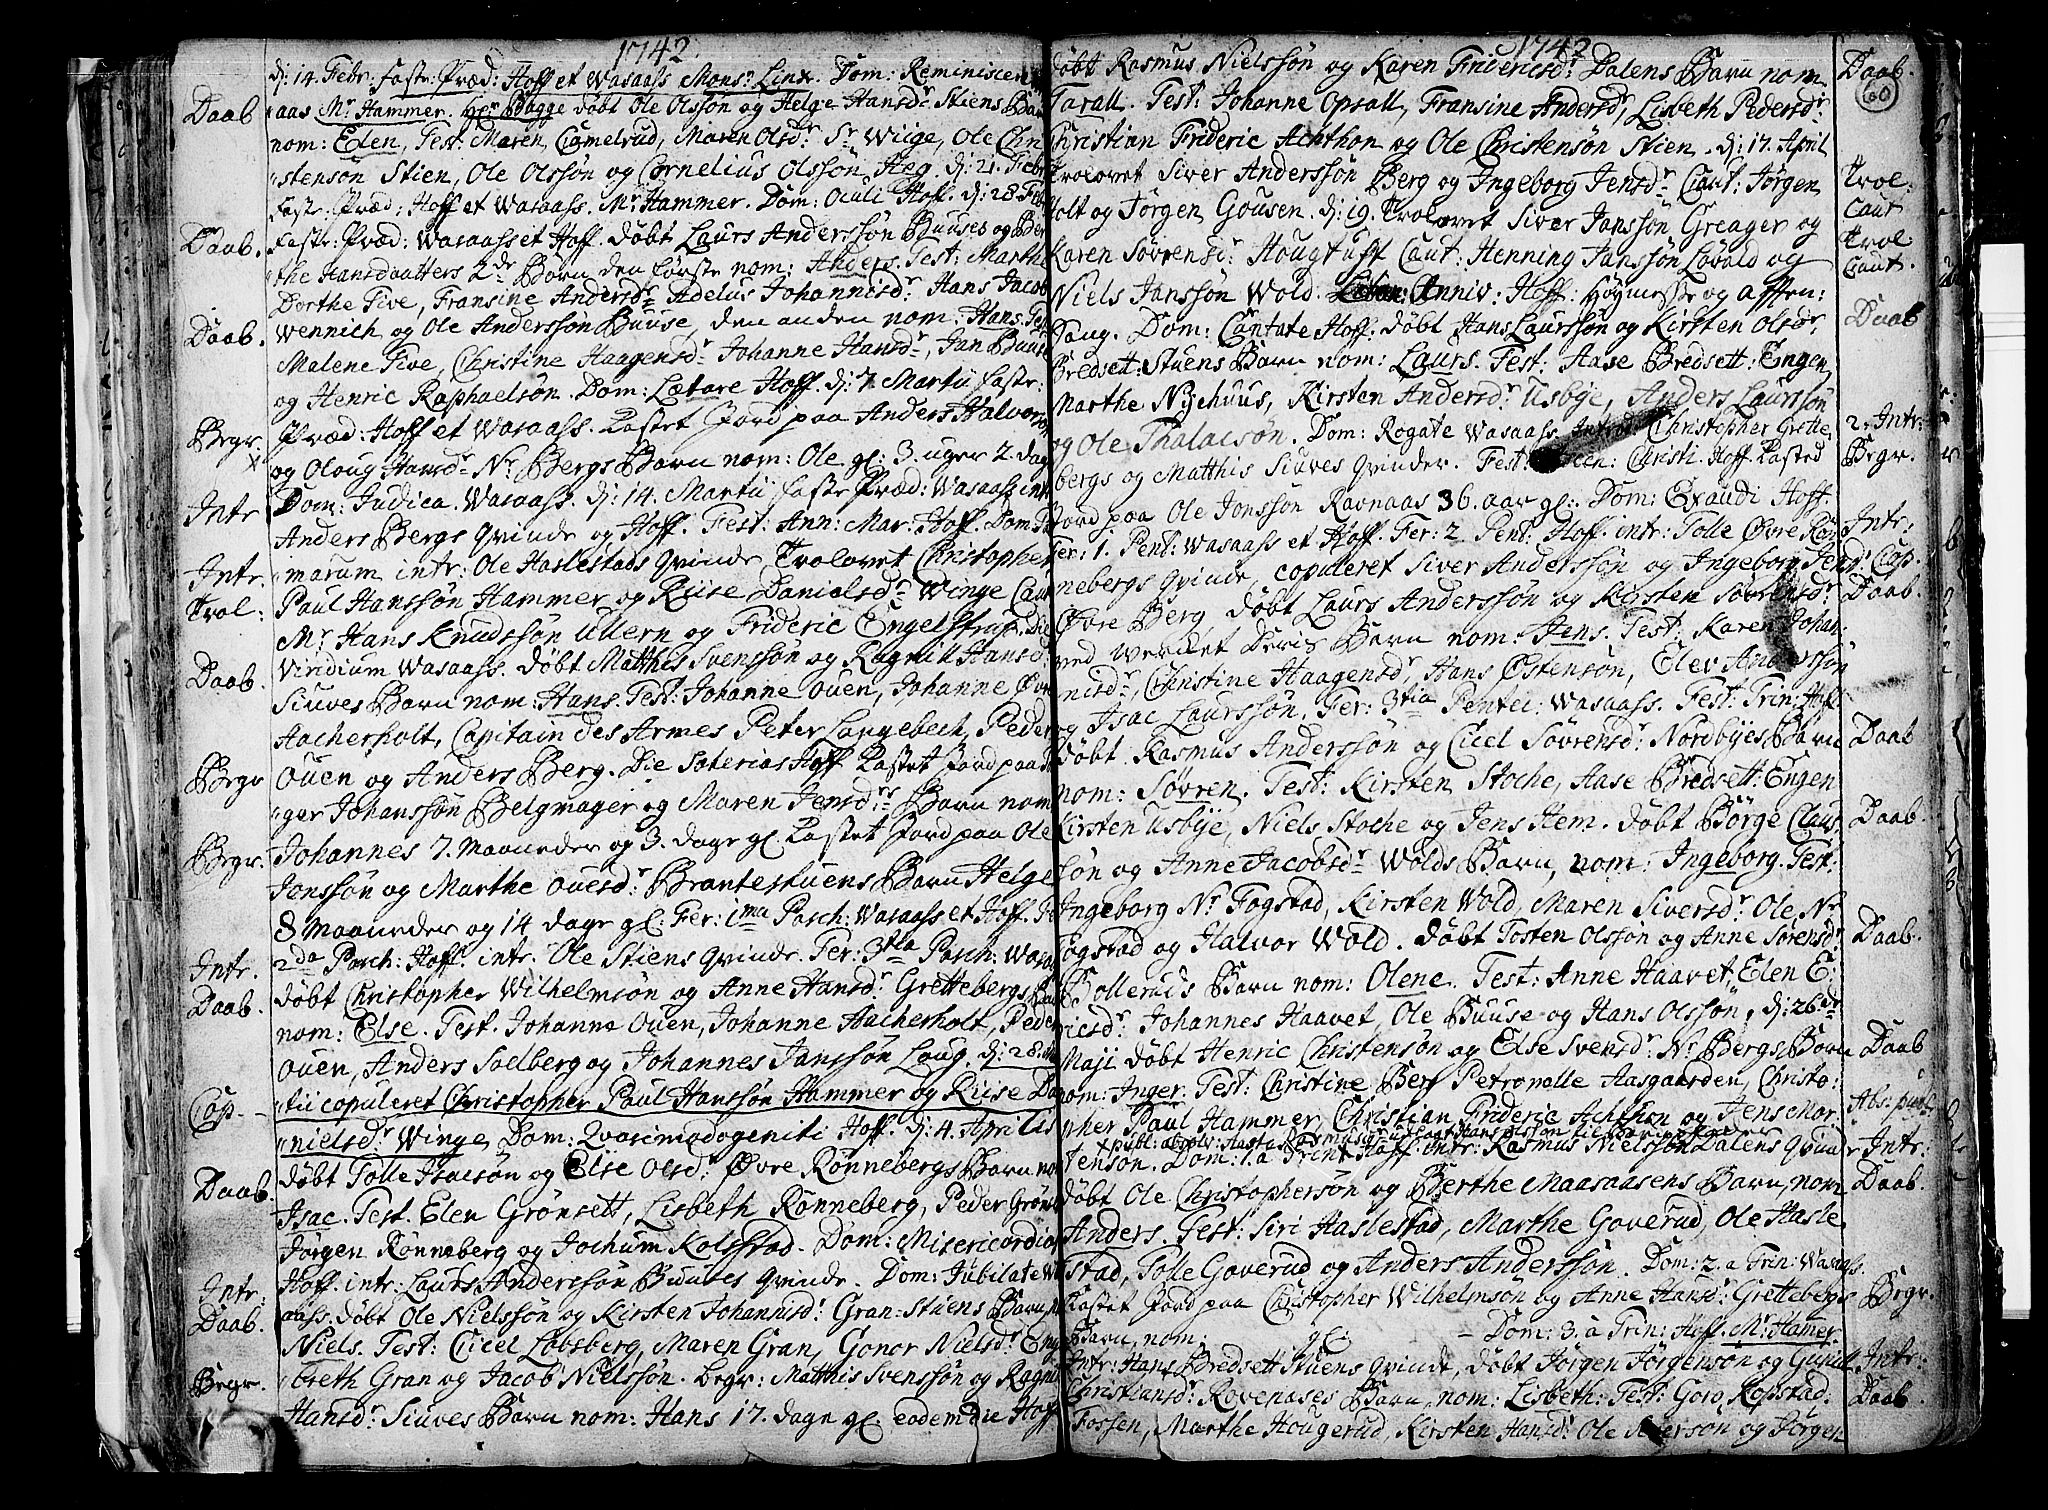 1742
dj: 14. Febr: faste-Præd: Hoff et Wasaass Mons: Linx. Dom: Reminiscere
Daab aas Mr Hammer. Hr Bagge döbt Ole Olssön og Helge Hansdr Stiens Barn
nom: Elen, Test: Maren Maren Olsdr Sr Wiige, Ole Chri
stensön Stien, Ole Olssön og Cornelius Olssön Heg. dj: 21. Febr
faste-Præd: Hoff et Wasaass. Mr Hammer. Dom: Oculi Hoff. dj: 28 Feb
Daab. faste-Præd: Wasaass et Hoff. döbt Laurs Anderssön Buuses og Ber
the Hansdaatters 2de Börn den förste nom: Anders. Test: Marthe
Dorthe Five, Fransine Andersdr Adelus Johannisdr Hans Jacob
Daab. Wennich og Ole Anderssön Buuse, den anden nom: Hans. Test
Malene Five, Christine Haagensdr Johanne Hansdr, Jan Buuse
og Henric Raphaelsön. Dom: Lætare Hoff. dj: 7. Martii faste:
Begr. Præd: Hoff et Wasaass. Kastet Jord paa Anders Halvorsön
og Oloug Hansdr Nr Bergs Barn nom: Ole gl: 3. uger 2. dage
Dom: Judica. Wasaass. dj: 14. Martii faste Præd: Wasaass intr
Intr Anders Bergs Qvinde og Hoff. Fest: Ann: Mar: Hoff. Dom: Pal
Intr. marum intr: Ole Haslestads Qvinde, Trolovet Christopher
Trol: Paul Hanssön Hammer og Riise Danielsdr Winge Caut
Mr Hans Knudssön Ullern og Frideric Engelstrup. Die
Daab. Viridium Wasaass. döbt Matthis Svenssön og Ragnill Hansdr
Siuves Barn nom: Hans. Test: Johanne Ouen, Johanne Övre
Aacherholt, Capitain des Armes Peter Langebech, Peder
Begr Ouen og Anders Berg. Die Soterias Hoff Kastet Jord paa
ger Johanssön Belgmager og Maren Jensdrs Barn nom
Begr. Johannes 7. Maaneder og 3. dage gl. Kastet Jord paa Ole
Jonssön og Marthe Ouesdr Brantestuens Barn Helge
8 Maaneder og 14 dage gl. Fer: 1ma Pasch: Wasaass et Hoff. Fe
Intr. 2da Pasch: Hoff. intr. Ole Stiens Qvinde. Fer: 3tia Pasch: Wasa
Daab. döbt Christopher Wilhelmsön og Anne Hansdr Grettebergs Barn
nom: Else. Test. Johanne Ouen, Johanne Aacherholt, Peder
Ouen, Anders Soelberg og Johannes Janssön Loug. dj: 28. Mar
Cop. tii copuleret Christopher Paul Hanssön Hammer og Riise Da
nielsdr Winge. Dom: Qvasimodogeniti Hoff. dj: 4. Aprilis
Daab. döbt Tolle Isacsön og Else Olsdr Övre Rönnebergs Barn no
Isac. Test. Elen Grönsett, Lisbeth Rönneberg, Peder Gröns
Jörgen Rönneberg og Jochum Kolstad. Dom: Misericordias
Intr: Hoff. intr: Laurs Anderssön Buuses Qvinde. Dom: Jubilate Wa
Daab. aass. döbt Ole Nielssön og Kirsten Johannisdr Gran-Stuens Barn
Niels. Test: Cicel Löbsberg, Maren Gran, Gonor Nielsdr Eng
Begr. breth Gran og Jacob Nielssön. begr: Matthis Svenssön og Ragnill
Hansdr Siuves Barn nom: Hans 17. dage gl. eodem die Hoff
1742
60
döbt Rasmus Nielssön og Karen Fridericsdr Dalens Barn nom Daab.
Tarall. Test: Johanne Opsall, Fransine Andersdr, Lisbeth Pedersdr
Christian Frideric Achthon og Ole Christensön Stien. dj: 17. April
Trolovet Siver Anderssön Berg og Ingeborg Jensdr Caut: Jörgen Trol:
Holt og Jörgen Gousen. dj: 19. Trolovet Siver Janssön Greager og Caut Trol
Karen Sövrensdr Hougtuft Caut: Henning Janssön Lövald og Caut.
Niels Janssön Wold. Anniv: Hoff: Höymesse og Afften:
Sang. Dom: Cantate Hoff. döbt Hans Laurssön og Kirsten Olsdr Daab
Bredsett-Stuens Barn nom: Laurs. Test: Aase Bredsett-Engen,
Marthe Nyehuus, Kirsten Andersdr Usbye, Anders Laurssön
og Ole Thalacsön. Dom: Rogate Wasaass. Introd: Christopher Grette 2. Intr:
bergs og Matthis Siuves Qvinder. Fest: Ascen: Christi. Hoff. Kasted Begr.
Jord paa Ole Jonssön Ravnaas 36. aar gl: Dom: Exaudi Hoff.
Fer: 1. Pent: Wasaass et Hoff. Fer: 2 Pent: Hoff. intr: Tolle Övre Rön Intr:
nebergs Qvinde, copuleret Siver Anderssön og Ingeborg Jensdr Cop.
Övre Berg döbt Laurs Anderssön og Kirsten Sövrensdr Daab.
ved Werket Deris Barn nom: Jens. Test: Karen Johan:
nisdr, Christine Haagensdr, Hans Östensön, Elev Anderssön
og Isac Laurssön. Fer: 3tia Pentec: Wasaass. Fest: Trin: Hoff.
döbt Rasmus Anderssön og Cicel Sövrensdr Nordbyes Barn Daab
nom: Sövren. Test: Kirsten Stoche, Aase Bredsett-Engen
Kirsten Usbye, Niels Stoche og Jens Hem. döbt Börge Claus Daab.
sön og Anne Jacobsdr Wolds Barn, nom: Ingeborg. Test:
Ingeborg Nr Fogstad, Kirsten Wold, Maren Siversdr Ole Nr
Fogstad og Halvor Wold. döbt Tosten Olssön og Anne Sörensdr Daab.
Bolleruds Barn nom: Olene. Test: Anne Haavet, Elen E:
ricsdr Johannes Haavet, Ole Buuse og Hans Olssön, dj: 26de
Maji döbt Henric Christensön og Else Svensdr Nr Bergs Barn Daab
nom: Inger. Test: Christine Berg Petronelle Aasgaarden, Christo:
pher Paul Hammer, Christian Frideric Achthon og Jens Mor Abs. publ:
x publ: absolv:
tenson. Dom: 1. a Trin: Hoff. intr: Rasmus Nielssön Dalens Qvinde Intr:
döbt Ole Christophersön og Berthe Maasaasens Barn, nom Daab.
Anders. Test: Siri Haslestad, Marthe Goverud, Ole Hasle
stad, Tolle Goverud og Anders Anderssön. Dom: 2. a Trin: Wasaass.
Kastet Jord paa Christopher Wilhelmson og Anne Hansdr Grettebergs Begr.
Barn, nom: gl: - Dom: 3. a Trin: Hoff. Mr Hamer
Intr: Hans Bredsett Stuens Qvinde, döbt Jörgen Jörgensön og Gunill Intr:
Christiansdr Rovenases Barn, nom: Lisbeth: Test: Goro Kopstad Daab
Fossen, Marthe Hougerud, Kirsten Hansdr Ole Iversön og Jörgen